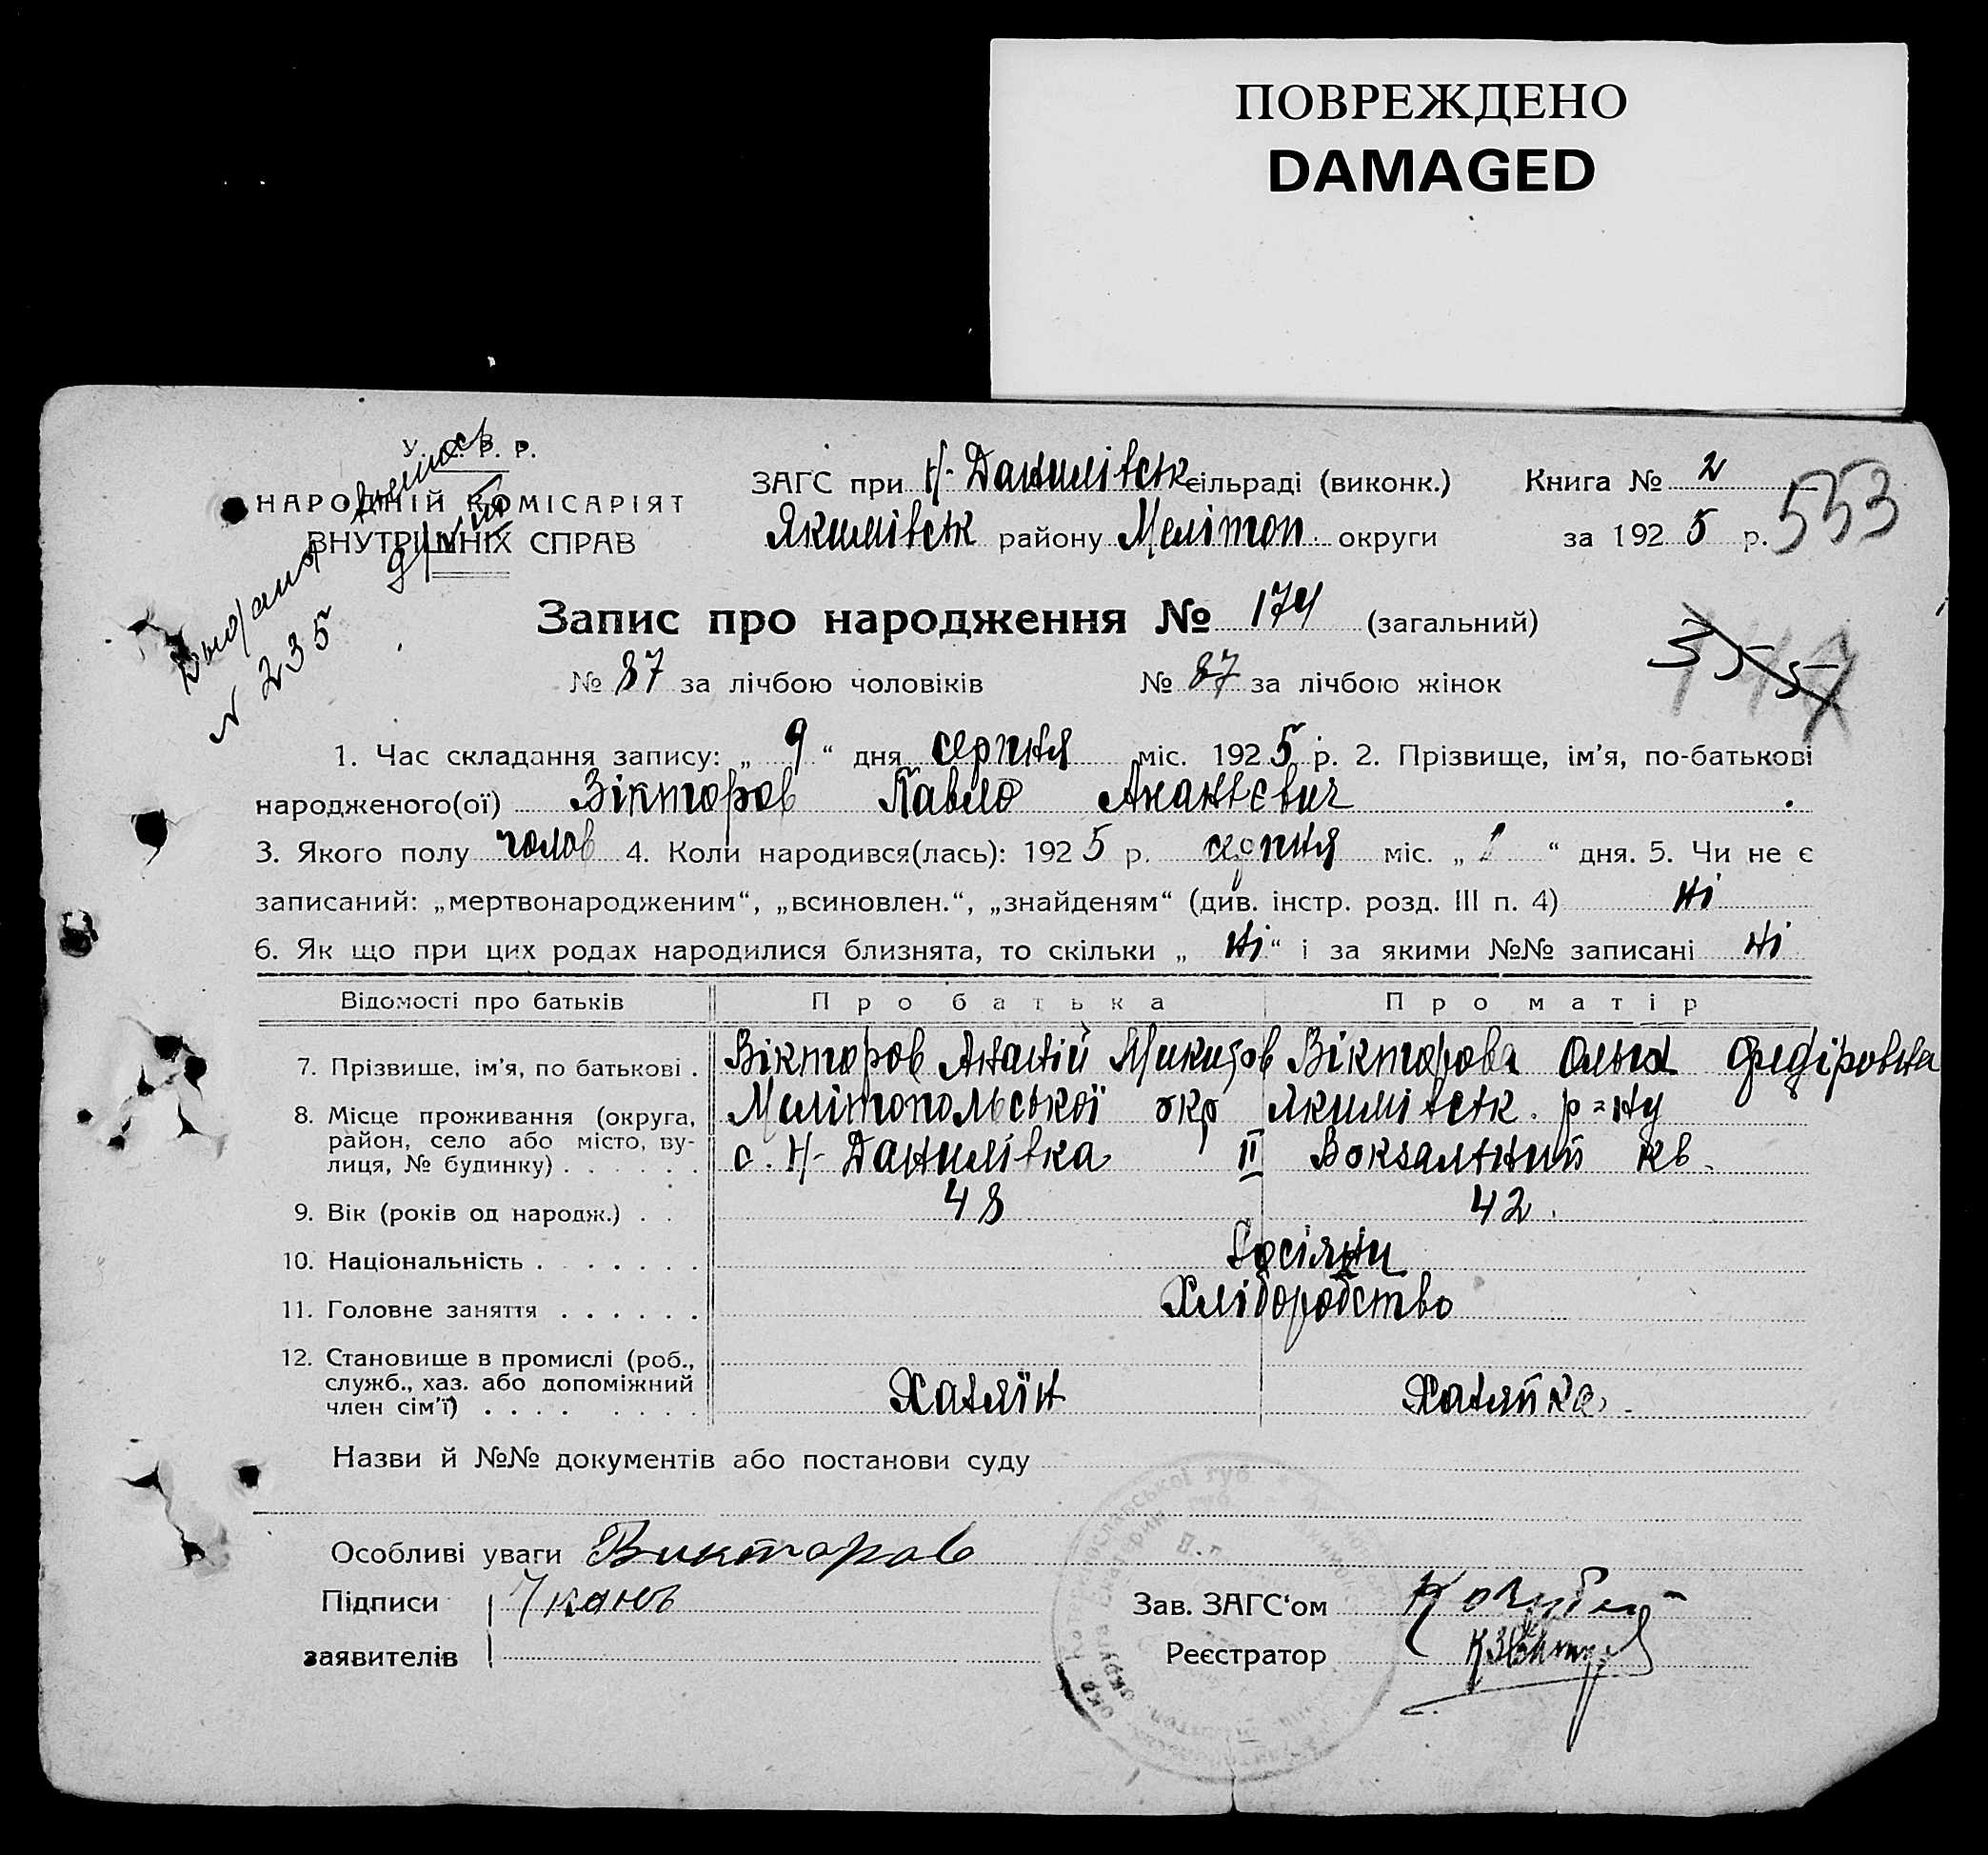 ПОВРЕЖДЕНО
DAMAGED
У. С. Р. Р.
НАРОДНІЙ КОМІСАРІЯТ
ВНУТРІШНІХ СПРАВ
N 235
ЗАГС при Н-Данилівськ сільраді (виконк.) Книга № 2
Якимівськ району Мелітоп. округи за 1925 р. 553
Запис про народження № 174 (загальний)
№ 87 за лічбою чоловіків № 87 за лічбою жінок
1. Час складання запису: „ 9 “ дня серпня міс. 1925 р. 2. Прізвище, ім'я, по-батькові
народженого(ої) Вікторов Павло
3. Якого полу чолов 4. Коли народився(лась): 1925 р. серпня міс. „ “ дня. 5. Чи не є
записаний: „мертвонародженим“, „всиновлен.“, „знайденям“ (див. інстр. розд. III п. 4) ні
6. Як що при цих родах народилися близнята, то скільки „ ні “ і за якими №№ записані ні
Відомості про батьків Про батька Про матір
7. Прізвище, ім'я, по батькові . Вікторов Микитов Вікторова Ольга Федіровна
8. Місце проживання (округа, район, село або місто, вулиця, № будинку) . . . . . . Мелітопольської окр Якимівськ. р=ну
с. Н-Данилівка II Вокзальний кв.
9. Вік (років од народж.) . . 48 42.
10. Національність . . . . . . . Росіяни
11. Головне заняття . . . . . . Хліборобство
12. Становище в промислі (роб., служб., хаз. або допоміжний член сім'ї) . . . . . . . . Хазяїн Хазяйка.
Назви й №№ документів або постанови суду
Особливі уваги Викторов
Підписи
заявителів
Зав. ЗАГС'ом
Реєстратор